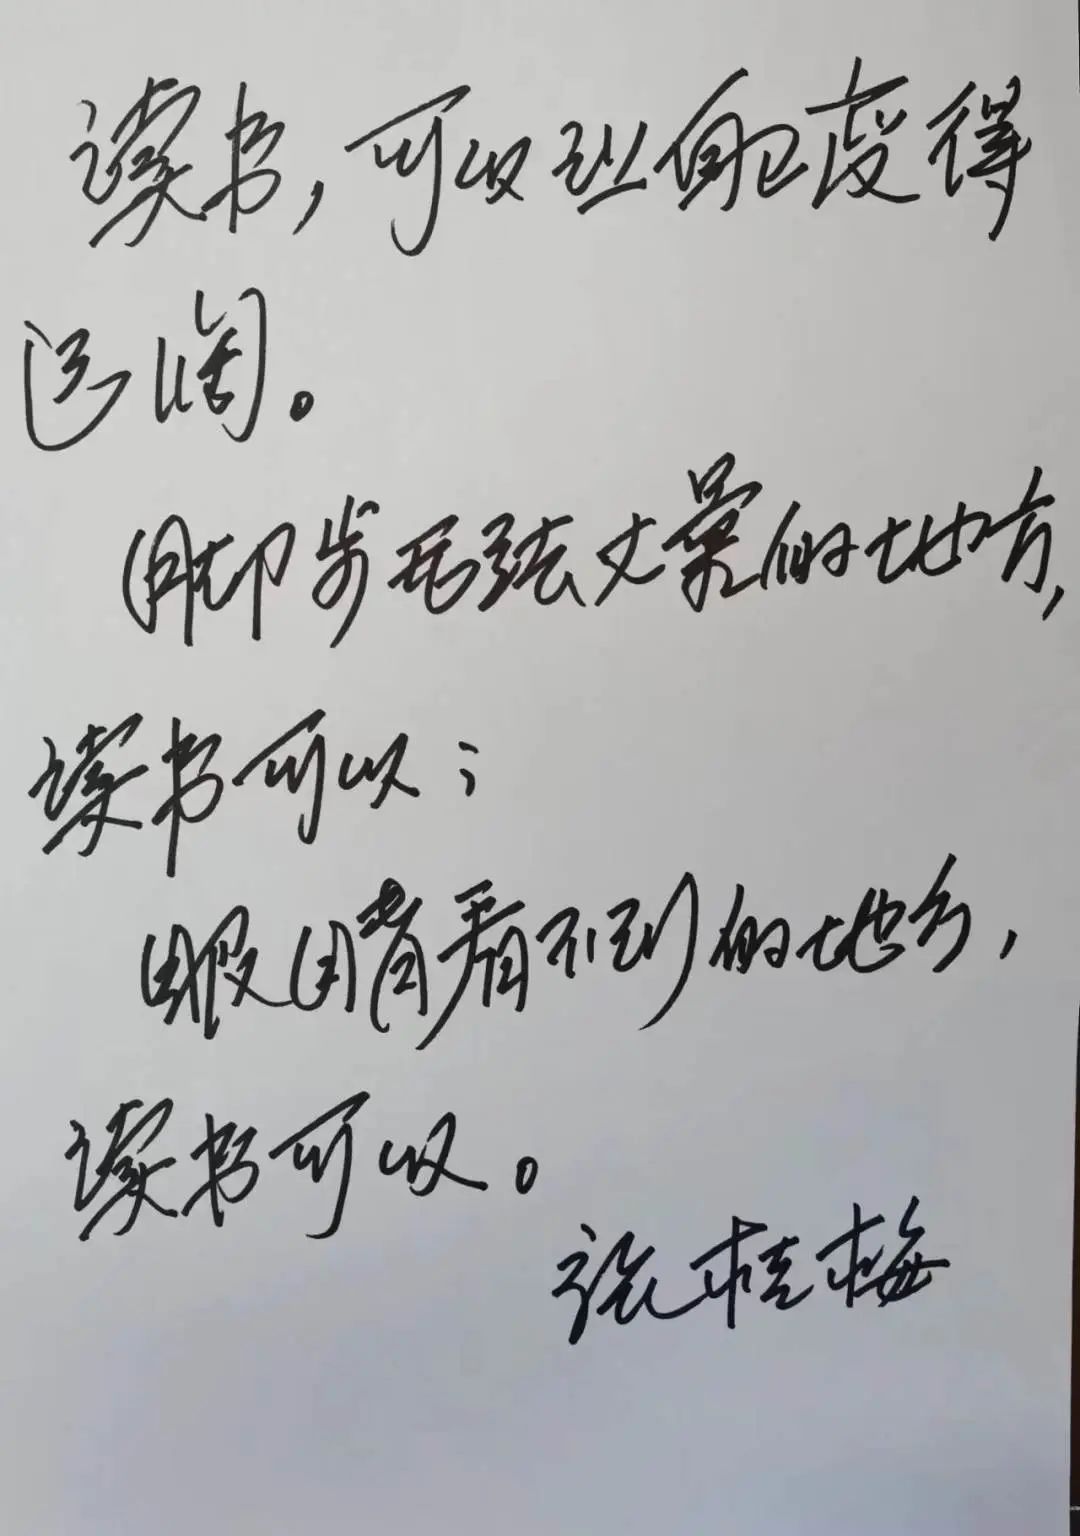 读书，可以让自己变得
辽阔。
脚步无法丈量的地方，
读书可以；
眼睛看不到的地方，
读书可以。
张桂梅